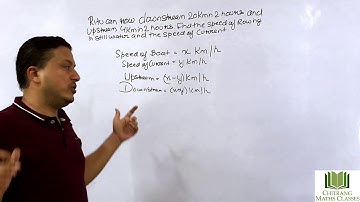 Ritu can row downstream 20km in 2 hours and
upstream 4km in 2 hours. Find the speed of Rowing
in Still water and the speed of Current.
Speed of Boat = x Km/h
Speed of Current = y Km/h
Upstream = (x-y) Km/h
Downstream = (x+y) Km/h
CHITRANG
MATHS CLASSES